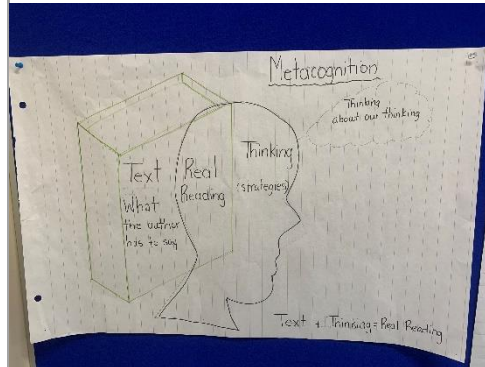 Metacognition
Thinking
about our thinking
Text
What
the author
has to say
Real
Reading
Thinking
(strategies)
Text + Thinking = Real Reading